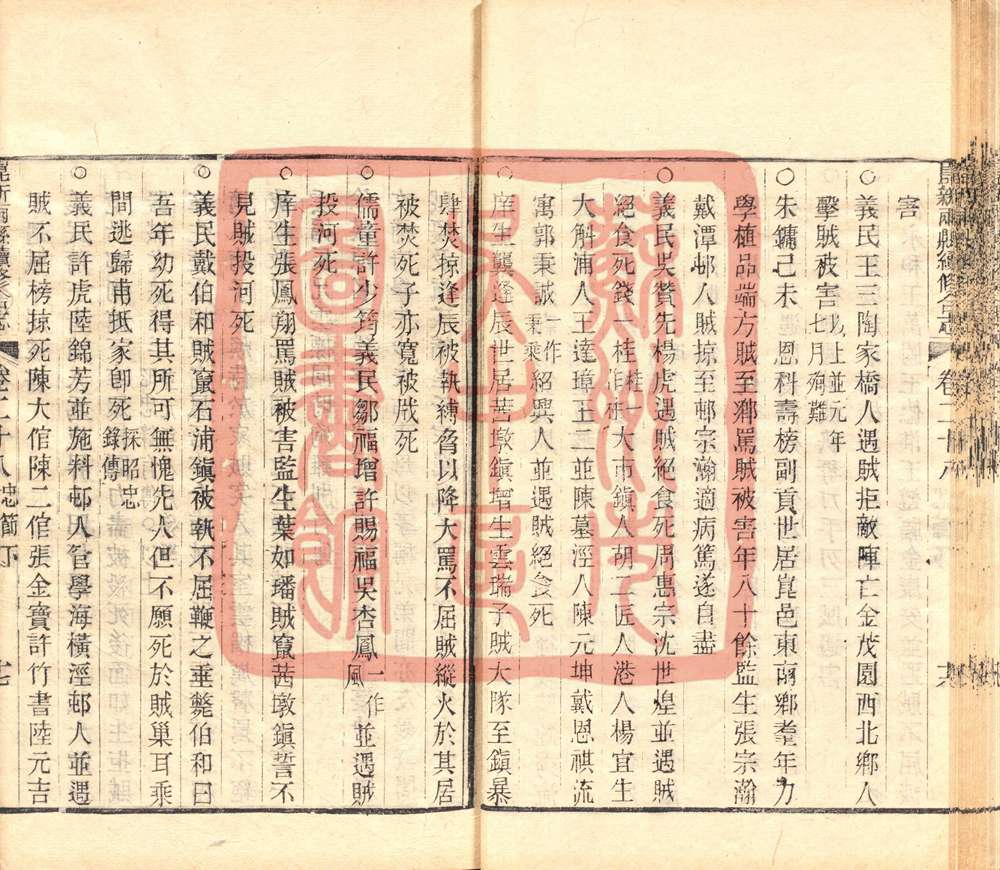 害
○義民王三陶家橋人遇賊拒敵陣亡金茂園西北鄉人
擊賊被害以上並元年七月殉難
朱鏞己未恩科壽榜副貢世居崑邑東南鄉耄年力
學植品端方賊至鄉罵賊被害年八十餘監生張宗瀚
戴潭邨人賊掠至邨宗瀚適病篤遂自盡
○義民吳贊先楊虎遇賊絕食死周惠宗沈世煌並遇賊
絕食死錢桂一作桂林大市鎮人胡二匠人港人楊宜生
大斛浦人王達璋王三並陳墓涇人陳元坤戴恩祺流
寓郭秉誠一作秉乘紹興人並遇賊絕食死
○庠生龔逢辰世居茜墩鎮增生雲瑞子賊大隊至鎮暴
肆焚掠逢辰被執縛脅以降大罵不屈賊縱火於其居
被焚死子亦寬被戕死
○儒童許少筠義民鄒福增許賜福吳杏鳳一作風並遇賊
投河死
○庠生張鳳翔罵賊被害監生葉如璠賊竄茜墩鎮誓不
見賊投河死
○義民戴伯和賊竄石浦鎮被執不屈鞭之垂斃伯和曰
吾年幼死得其所可無愧先人但不願死於賊巢耳乘
間逃歸甫抵家卽死採昭忠錄傳
○義民許虎陸錦芳並施料邨人管學海橫涇邨人並遇
賊不屈榜掠死陳大倌陳二倌張金寶許竹書陸元吉
崑新兩縣續修合志 卷二十八 忠節下 十七